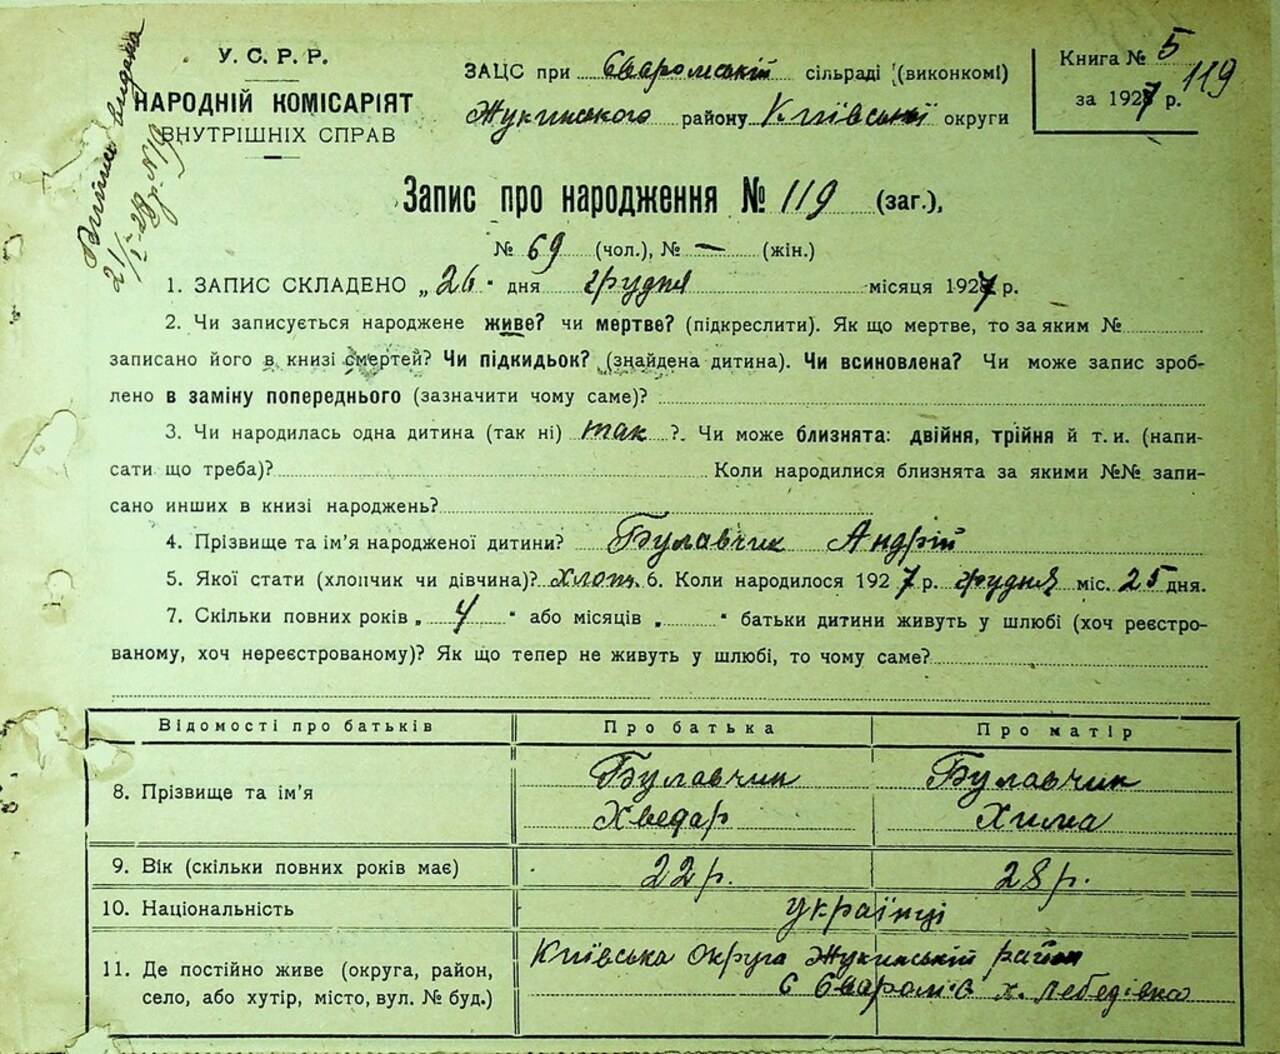 Виписк видана
21/I-28 р. N19
У. С. Р. Р.
НАРОДНІЙ КОМІСАРІЯТ
ВНУТРІШНІХ СПРАВ
ЗАЦС при Єваромській сільраді (виконкомі)
Жукинського району Київської округи
Книга № 5
за 1927 р.
119
Запис про народження № 119 (заг.),
№ 69 (чол.), № — (жін.)
1. ЗАПИС СКЛАДЕНО „26" дня грудня місяця 1927 р.
2. Чи записується народжене живе? чи мертве? (підкреслити). Як що мертве, то за яким №
записано його в книзі смертей? Чи підкидьок? (знайдена дитина). Чи всиновлена? Чи може запис зроб-
лено в заміну попереднього (зазначити чому саме)?
3. Чи народилась одна дитина (так ні) так ?. Чи може близнята: двійня, трійня й т. и. (напи-
сати що треба)? Коли народилися близнята за якими №№ запи-
сано инших в книзі народжень?
4. Прізвище та ім'я народженої дитини? Булавчик Андрій
5. Якої стати (хлопчик чи дівчина)? хлопч. 6. Коли народилося 1927 р. грудня міс. 25 дня.
7. Скільки повних років „ 4 " або місяців „ " батьки дитини живуть у шлюбі (хоч реєстро-
ваному, хоч нереєстрованому)? Як що тепер не живуть у шлюбі, то чому саме?
Відомості про батьків Про батька Про матір
8. Прізвище та ім'я Булавчик Хведар Булавчик Хима
9. Вік (скільки повних років має) 22 р. 28 р.
10. Національність українці
11. Де постійно живе (округа, район, Київська округа Жукинській район
село, або хутір, місто, вул. № буд.) с Єваром'є х. Лебедівка